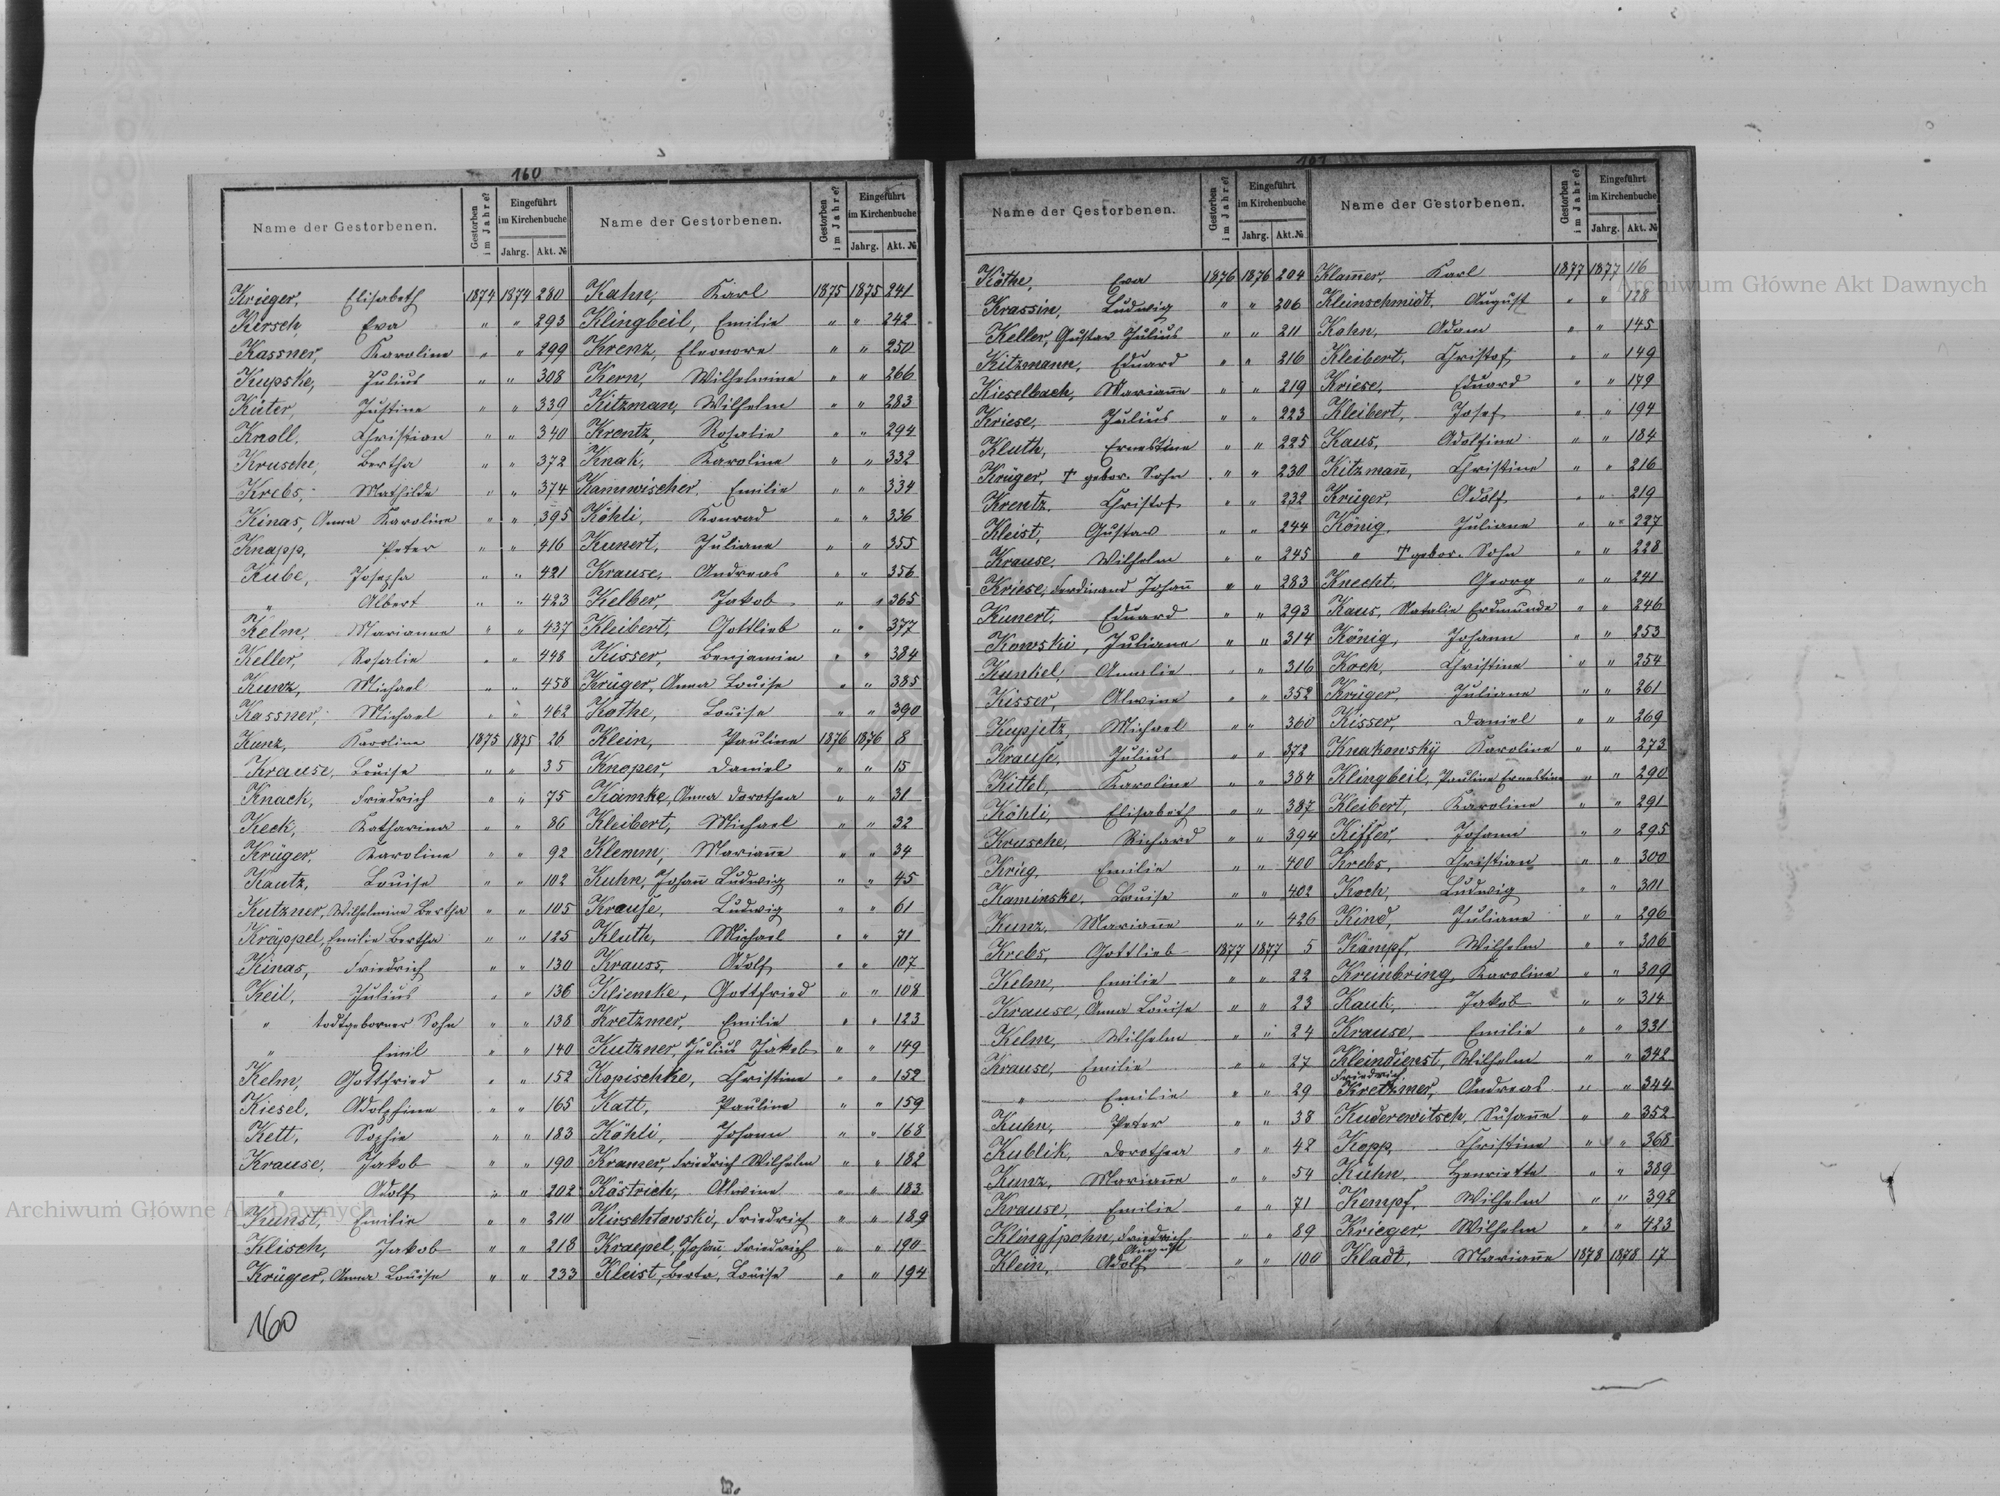 160
Name der Gestorbenen. Gestorben im Jahre? Eingeführt im Kirchenbuche Jahrg. Akt. №
Krieger, Elisabeth 1874 1874 280
Kirsch, Eva " " 293
Kassner, Karoline " " 299
Kupske, Julius " " 308
Küter, Justine " " 339
Knoll, Christian " " 340
Krusche, Bertha " " 372
Krebs, Mathilde " " 374
Kinas, Anna Karoline " " 395
Knapp, Peter " " 416
Kube, Josepha " " 421
" Albert " " 423
Kelm, Marianna " " 437
Keller, Rosalie " " 448
Kunz, Michael " " 458
Kassner, Michael " " 462
Kunz, Karoline 1875 1875 26
Krause, Louise " " 35
Knack, Friedrich " " 75
Keck, Katharina " " 86
Krüger, Karoline " " 92
Kautz, Louise " " 102
Kutzner, Wilhelmine Bertha " " 105
Kräppel, Emilie Bertha " " 125
Kinas, Friedrich " " 130
Keil, Julius " " 136
" todtgeborner Sohn " " 138
" Emil " " 140
Kelm, Gottfried " " 152
Kiesel, Adolphine " " 165
Kett, Sophie " " 183
Krause, Jakob " " 190
" Adolf " " 202
Kunst, Emilie " " 210
Klisch, Jakob " " 218
Krüger, Anna Louise " " 233
160
Name der Gestorbenen. Gestorben im Jahre? Eingeführt im Kirchenbuche Jahrg. Akt. №
Kahn, Karl 1875 1875 241
Klingbeil, Emilie " " 242
Krenz, Eleonore " " 250
Kern, Wilhelmine " " 266
Kitzman, Wilhelm " " 283
Krentz, Rosalie " " 294
Knak, Karoline " " 332
Kannwischer, Emilie " " 334
Köhli, Konrad " " 336
Kunert, Juliane " " 355
Krause, Andreas " " 356
Kelber, Jakob " " 365
Kleibert, Gottlieb " " 377
Kisser, Benjamin " " 384
Krüger, Anna Louise " " 385
Kothe, Louise " " 390
Klein, Pauline 1876 1876 8
Knoper, Daniel " " 15
Kamke, Anna Dorothea " " 31
Kleibert, Michael " " 32
Klemm, Mariane " " 34
Kuhn, Johan Ludwig " " 45
Krause, Ludwig " " 61
Kluth, Michael " " 71
Krauss, Adolf " " 107
Kliemke, Gottfried " " 108
Kretzmer, Emilie " " 123
Kutzner, Julius Jakob " " 149
Kopischke, Christine " " 152
Katt, Pauline " " 159
Köhli, Johann " " 168
Kramer, Friedrich Wilhelm " " 182
Kästrich, Alwine " " 183
Kirschtowski, Friedrich " " 189
Kraepel, Johan Friedrich " " 190
Kleist, Berta, Louise " " 194
Name der Gestorbenen. Gestorben im Jahre? Eingeführt im Kirchenbuche Jahrg. Akt. №
Köthe, Ewa 1876 1876 204
Krassin, Ludwig " " 206
Keller, Gustav Julius " " 211
Kitzmann, Eduard " " 216
Kieselbach, Mariane " " 219
Kriese, Julius " " 223
Kluth, Ernestine " " 225
Krüger, † gebor. Sohn " " 230
Krentz, Christof " " 232
Kleist, Gustav " " 244
Krause, Wilhelm " " 245
Kriese, Ferdinand Johan " " 283
Kunert, Eduard " " 293
Kowski, Juliane " " 314
Kunkel, Amalie " " 316
Kisser, Alwine " " 352
Kupjetz, Michael " " 360
Krause, Julius " " 372
Kittel, Karoline " " 384
Köhli, Elisabeth " " 387
Krusche, Richard " " 394
Krüg, Emilie " " 400
Kaminske, Louise " " 402
Kunz, Mariane " " 426
Krebs, Gottlieb 1877 1877 5
Kelm, Emilie " " 22
Krause, Anna Louise " " 23
Kelm, Wilhelm " " 24
Krause, Emilie " " 27
" Emilie " " 29
Kuhn, Peter " " 38
Kublik, Dorothea " " 42
Kunz, Mariane " " 54
Krause, Emilie " " 71
Klingspohn, Friedrich August " " 89
Klein, Adolf " " 100
Name der Gestorbenen. Gestorben im Jahre? Eingeführt im Kirchenbuche Jahrg. Akt. №
Klam̄er, Karl 1877 1877 116
Kleinschmidt, August " " 128
Kahn, Adam " " 145
Kleibert, Christof " " 149
Kriese, Eduard " " 179
Kleibert, Josef " " 194
Kaus, Adolfine " " 184
Kitzman̄, Christine " " 216
Krüger, Adolf " " 219
König, Juliane " " 227
" † gebor. Sohn " " 228
Knecht, Georg " " 241
Kaus, Natalie Erdmunde " " 246
König, Johann " " 253
Koch, Christine " " 254
Krüger, Juliane " " 261
Kisser, Daniel " " 269
Knakowsky Karoline " " 273
Klingbeil, Pauline Ernestine " " 290
Kleibert, Karoline " " 291
Kisser, Johann " " 295
Krebs, Christian " " 300
Koch, Ludwig " " 301
Kind, Juliane " " 296
Kämpf, Wilhelm " " 306
Kreinbring, Karoline " " 309
Kauk, Jakob " " 314
Krause, Emilie " " 331
Kleindienst, Wilhelm Friedrich " " 342
Kretzmer, Andreas " " 344
Kuderewitsch, Susane " " 352
Kopp, Christine " " 368
Kühn, Henriette " " 389
Kempf, Wilhelm " " 392
Krieger, Wilhelm " " 423
Kladt, Mariane 1878 1878 17
Archiwum Główne Akt Dawnych
Archiwum Główne Akt Dawnych